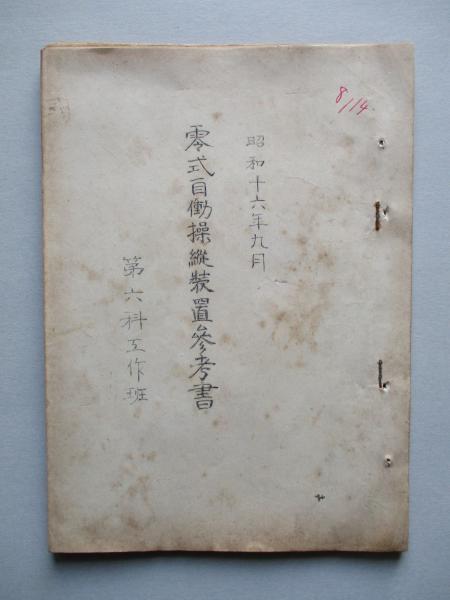 8/14
昭和十六年九月
零式自働操縦装置参考書
第六科工作班